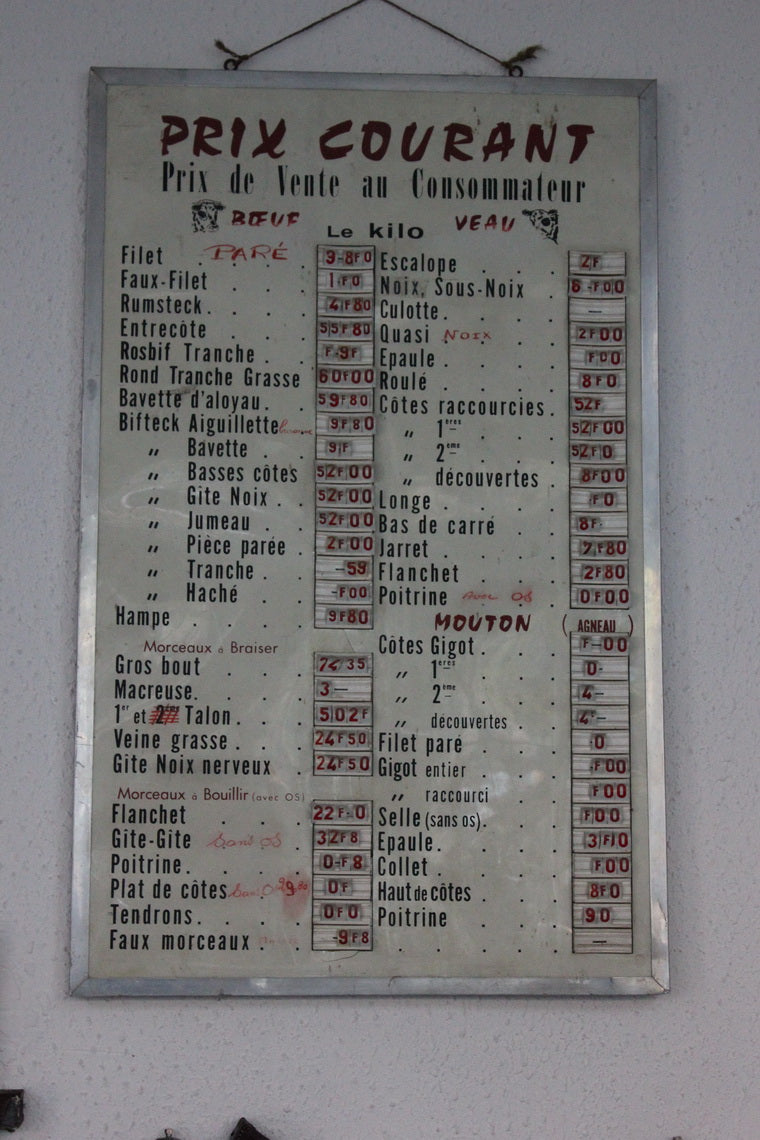 PRIX COURANT
Prix de Vente au Consommateur
BŒUF
Le kilo
Filet PARÉ 9-8F0
Faux-Filet 1F0
Rumsteck 4F80
Entrecôte 55F80
Rosbif Tranche F9F
Rond Tranche Grasse 60F00
Bavette d'aloyau 59F80
Bifteck Aiguillette 9F80
〃 Bavette 9F
〃 Basses côtes 52F00
〃 Gîte Noix 52F00
〃 Jumeau 52F00
〃 Pièce parée 2F00
〃 Tranche -59
〃 Haché -F00
Hampe 9F80
Morceaux à Braiser
Gros bout 74 35
Macreuse 3-
1er et 2èmes Talon 502F
Veine grasse 24F50
Gite Noix nerveux 24F50
Morceaux à Bouillir (avec OS)
Flanchet 22F-0
Gîte-Gîte Sans OS 32F8
Poitrine 0-F8
Plat de côtes 0F
Tendrons 0F0
Faux morceaux -9F8
VEAU
Escalope 2F
Noix, Sous-Noix 6-F00
Culotte -
Quasi Noix 2F00
Epaule F00
Roulé 8F0
Côtes raccourcies 52F
〃 1ères 52F00
〃 2ème 52F0
〃 découvertes 8F00
Longe F0
Bas de carré 8F
Jarret 7F80
Flanchet 2F80
Poitrine Avec OS 0F00
MOUTON (AGNEAU)
Côtes Gigot F-00
〃 1ères 0-
〃 2ème 4-
〃 découvertes 4F-
Filet paré 0
Gigot entier F00
〃 raccourci F00
Selle (sans os) F00
Epaule 3F10
Collet F00
Haut de côtes 8F0
Poitrine 90
-